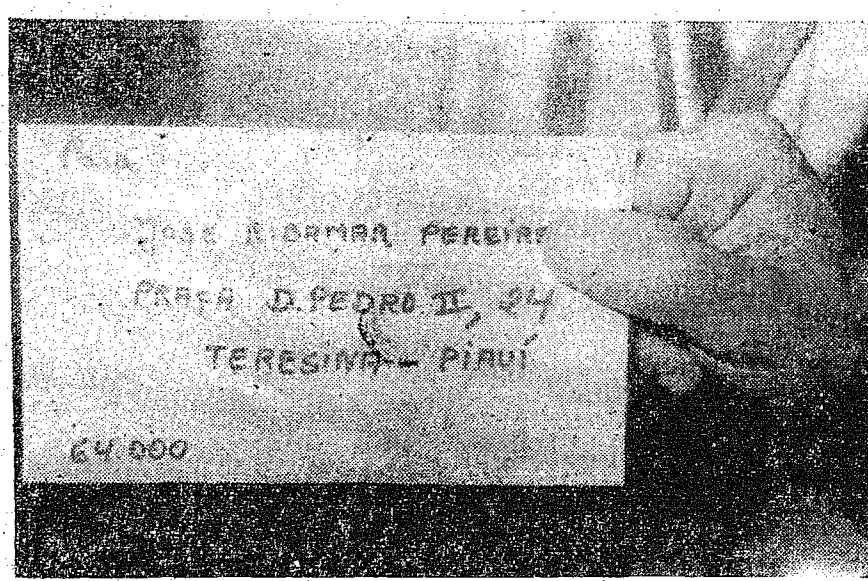 Para
JOSÉ RIBAMAR PEREIRA
PRAÇA D. PEDRO II, 24
TERESINA - PIAUÍ
64.000